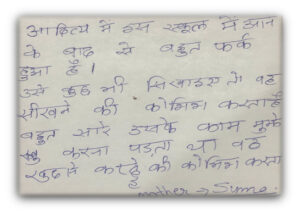 आदित्य में इस स्कूल में आने
के बाद से बहुत फर्क
हुआ है।
उसे कुछ भी सिखाइए तो वह
सीखने की कोशिश करता है
बहुत सारे उसके काम मुझे
करना पड़ता था वह
खुद से करने की कोशिश करता
mother → Suma.